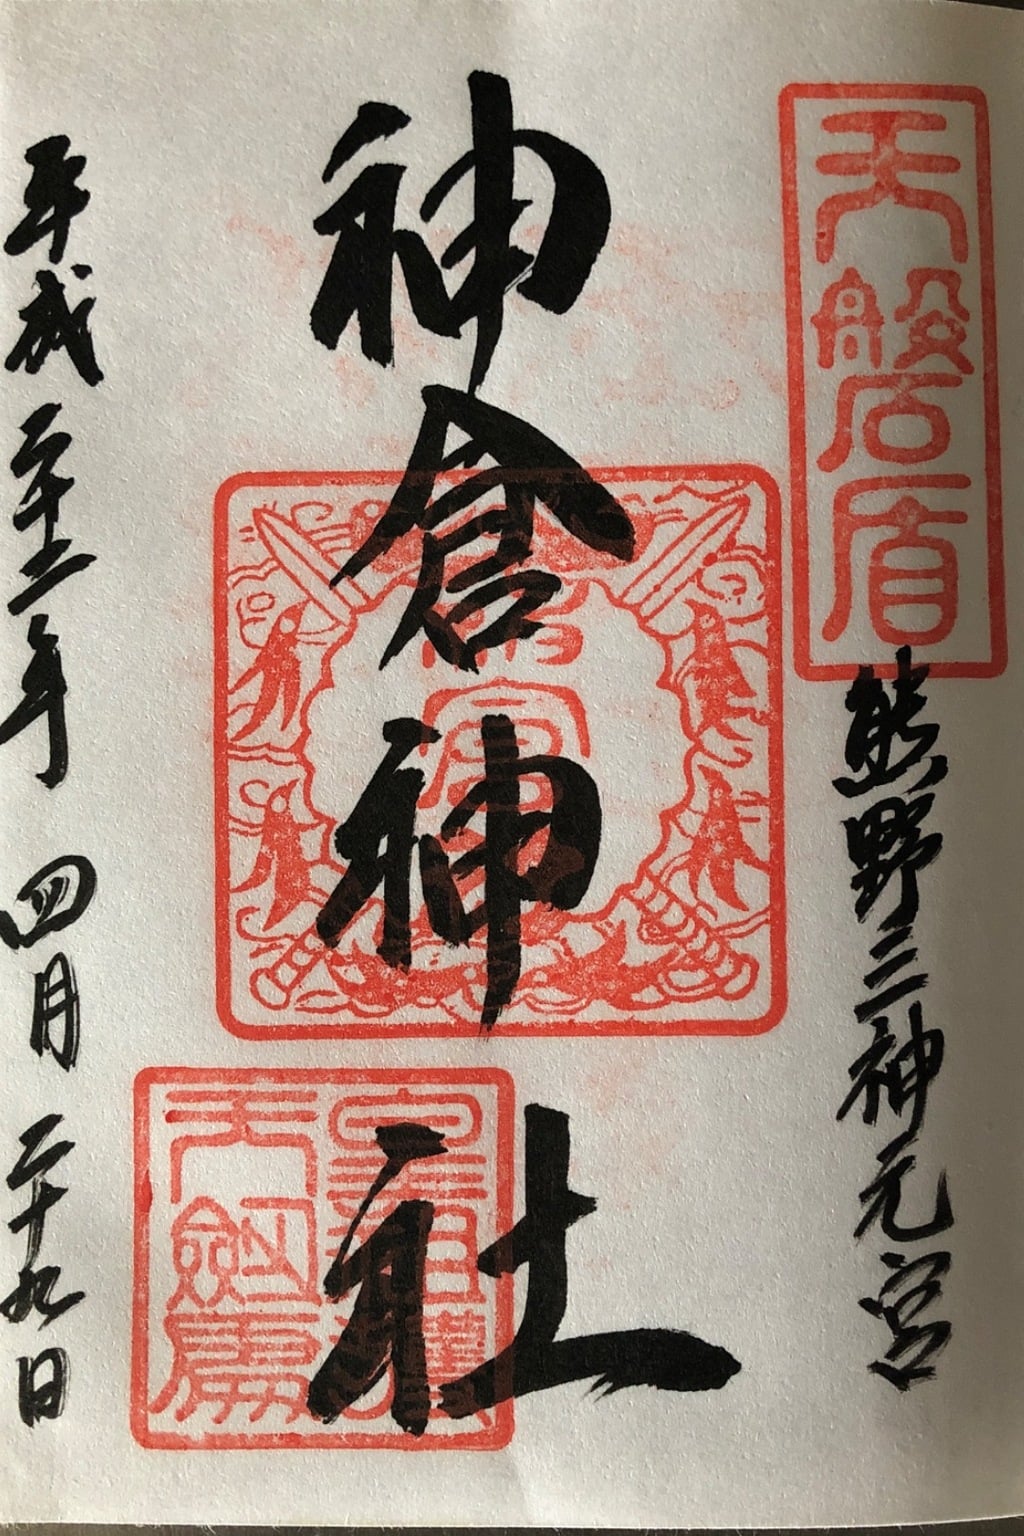 天磐盾
熊野三神元宮
神倉神社
平成二十三年四月二十九日